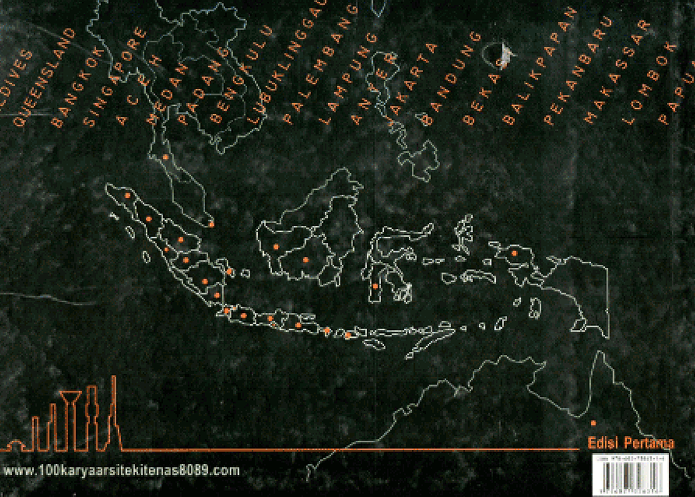 QUEENSLAND
BANGKOK
SINGAPORE
ACEH
MEDAN
PADANG
BENGKULU
LUBUKLINGGAU
PALEMBANG
LAMPUNG
ANYER
JAKARTA
BANDUNG
BEKASI
BALIKPAPAN
PEKANBARU
MAKASSAR
LOMBOK
PAPUA
Edisi Pertama
www.100karyaarsitekitenas8089.com